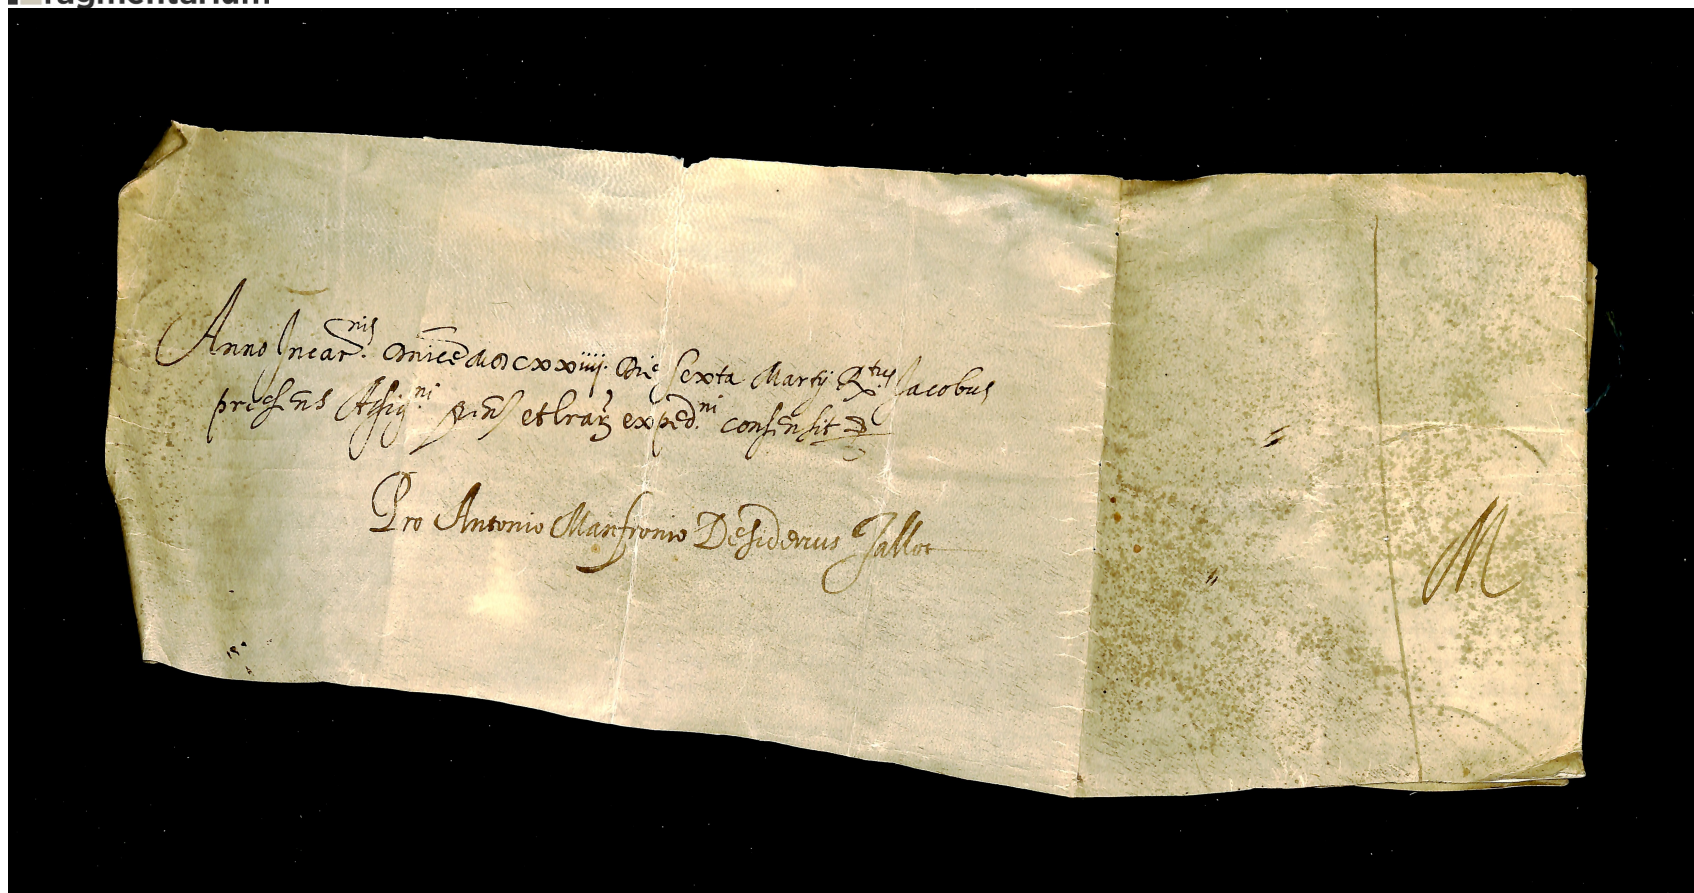 ragmentarium
Anno Incar.nis Dnice MDCXXiiij. Die Sexta Martij R.tus Jacobus
presens Assig.ni et lrarz exped.ni consensit
Pro Antonio Manfronio Desiderius Jallot
M